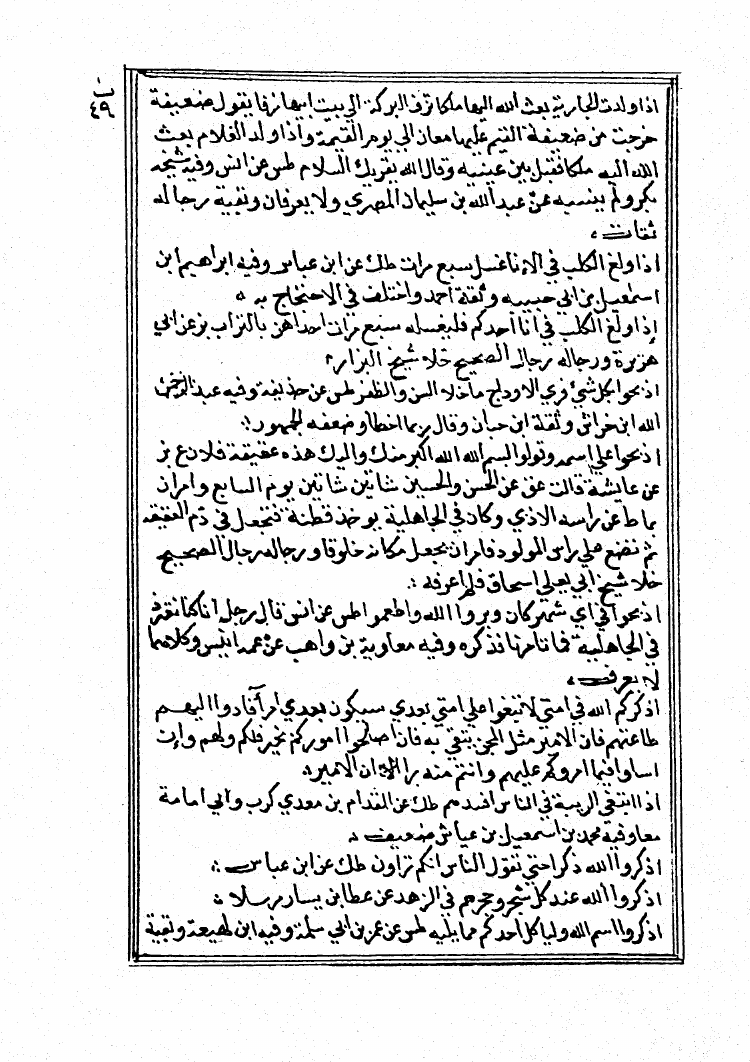 ب
٤٩
اذا ولدت الجارية بعث الله اليها ملكا يزف البركة الي بيت ابيها زفا يقول ضعيفة
خرجت من ضعيفة القيم عليها معان الي يوم القيمة واذا ولد الغلام بعث
الله اليه ملكا فقبل بين عينيه وقال الله يقريك السلام طس عن انس وفيه شيخه
بكر ولم ينسبه عن عبد الله بن سليمان المصري ولا يعرفان وبقية رجاله
ثقات
اذا ولغ الكلب في الاناء غسل سبع مرات طك عن ابن عباس وفيه ابراهيم ابن
اسمعيل بن ابي حبيبه وثقة احمد واختلف في الاحتجاج به
إذا ولغ الكلب في انا احدكم فليغسله سبع مرات احداهن بالتراب بز عن ابي
هريرة ورجاله رجال الصحيح خلا شيخ البزار
اذبحوا بكل شيء فري الاوداج ما خلا السن والظفر طس عن حذيفة وفيه عبد
الله ابن خراش وثقة ابن حبان وقال ربما اخطا وضعفه الجمهور
اذبحوا علي اسمه وقولوا بسم الله الله اكبر منك واليك هذه عقيقة فلان ع بز
عن عايشة قالت عق عن الحسن والحسين شاتين شاتين يوم السابع وامر ان
يماط عن راسه الاذي وكان في الجاهلية يوخذ قطنة فتجعل في دم العقيقه
ثم تضع علي راس المولود فامر ان يجعل مكانه خلوقا ورجاله رجال الصحيح
خلا شيخ ابي يعلي اسحاق فلم اعرفه
اذبحوا في اي شهر كان وبروا الله واطعموا طس عن انس قال رجل انا كنا نعتر
في الجاهلية فما تامرنا فذكره وفيه معاوية بن واهب عن عمه انيس وكلاهما
لا يعرف
اذكركم الله في امتي لا تبغوا علي امتي بعدي سيكون بعدي امرا فادوا اليهم
طاعتهم فان الامير مثل المجن يتقي به فان اصلحوا اموركم بخير فلكم ولهم وان
اساوا فيما امروكم عليهم وانتم منه برا الامير
اذا ابتغي الريبة في الناس افسدهم طك عن المقدام بن معدي كرب وابي امامة
معا وفيه محمد بن اسمعيل بن عياش ضعيف
اذكروا الله ذكرا حتي تقول الناس انكم تراون طك عن ابن عباس
اذكروا الله عند كل شجر وحجر حم في الزهد عن عطا بن يسار مرسلا
اذكروا اسم الله وليا كل احدكم مما يليه طس عن عمر بن ابي سلمة وفيه ابن لهيعة وبقية